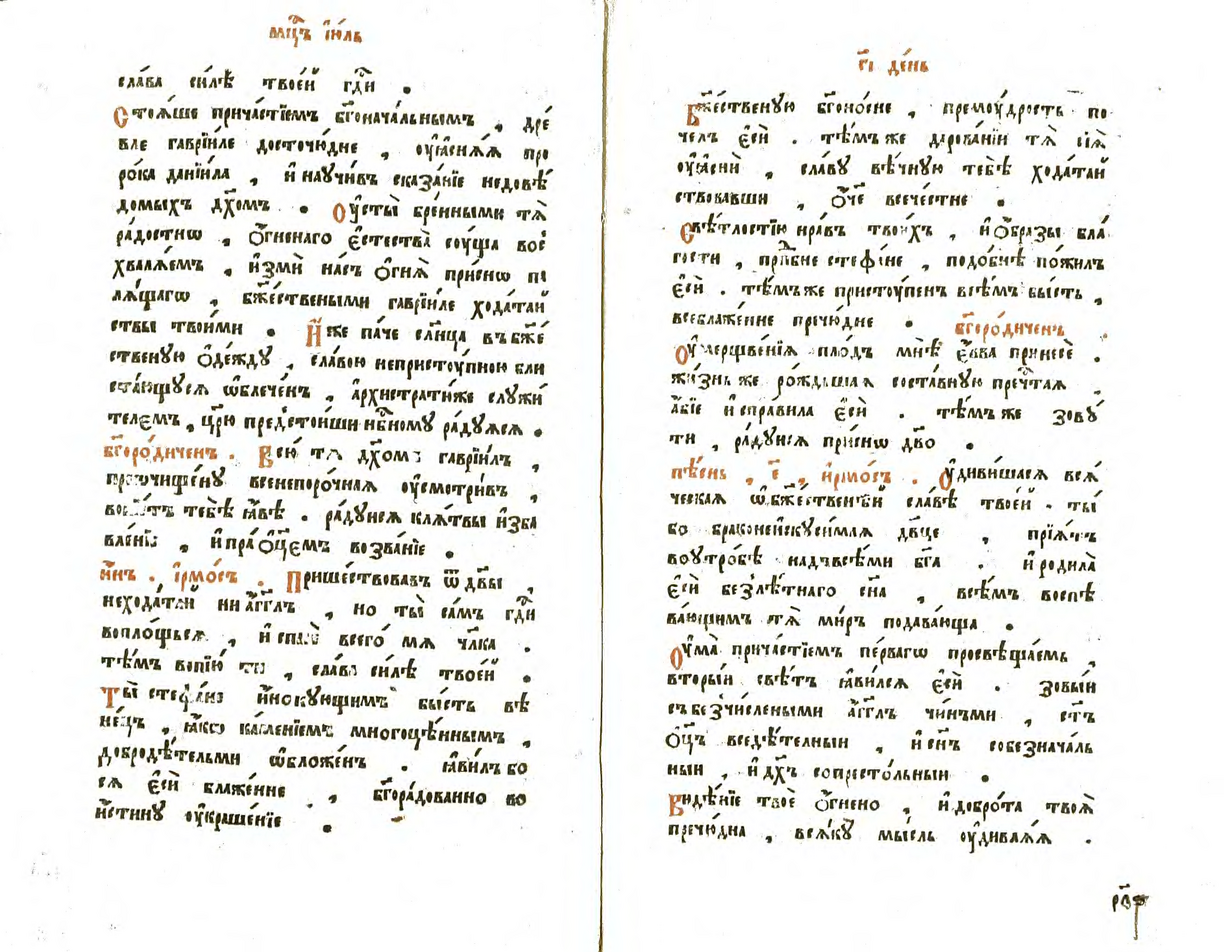 мц҃ъ і҆ю́ль
сла́ва си́лѣ твое́й гдⷭ҇и .
Стоѧ́ше прича́стїемъ бг҃онача́льнымъ , дре́
вле гаврїи́ле досточю́дне , оу҆ѧсня́ѧ про
ро́ка данїи́ла , и҆ научи́въ сказа́нїе недовѣ́
домыхъ дх҃омъ . Оу҆сты̀ бре́нными тѧ̀
ра́достнѡ , ѻ҆́гненаго є҆стества̀ соу́ща вос
хвалѧ́емъ , и҆змѝ на́съ ѻ҆гнѧ̀ при́снѡ па
лѧ́щагѡ , бж҃е́ственыими гаврїи́ле хода́тай
ствы твои́ми . И҆́же па́че сл҃нца въ бж҃е́
ственую ѻ҆де́жду , сла́вою непристоу́пною бли
ста́ющуся ѡ҆блече́нъ , а҆рхистрати́же служи́
телемъ , цр҃ю̀ предстоѧ́ши нб҃ному ра́дуисѧ .
бг҃оро́диченъ . Всю̀ тѧ дх҃омъ гаврїи́лъ ,
пречи́щену всенепоро́чнаѧ оу҆смотри́въ ,
вопїе́тъ тебѣ̀ ꙗ҆́вѣ . ра́дуисѧ клѧ́твы и҆зба
вле́нїе , и҆ пра́ѻц҃емъ воззва́нїе .
и҆́нъ . і҆рмо́съ . Прише́ствовавъ ѿ дв҃ы ,
не хода́тай ни а҆́гг҃лъ , но ты̀ са́мъ гдⷭ҇и
вопло́щьсѧ , и҆ спасѐ всего́ мѧ чл҃ка .
тѣ́мъ вопїю́ ти , сла́ва си́лѣ твое́й .
Ты̀ стефа́не и҆нокующимъ бы́сть вѣ
не́цъ , ꙗ҆́ко ка́менїемъ многоцѣ́ннымъ ,
доброде́тельми ѡ҆бложе́нъ . ꙗ҆ви́лъ бо
сѧ є҆сѝ блаже́нне , бг҃ора́дованно во
и҆́стину оу҆краше́нїе .
г҃і де́нь
Бж҃е́ственую бг҃оно́сне , прему́дрость по
че́лъ є҆сѝ . тѣ́мъ же дарова́нїи тѧ̀ сїѧ̀
оу҆ѧснѝ , сла́ву вѣ́чную тебѣ̀ хода́тай
ствовавши , ѻ҆́ч҃е всече́стне .
Свѣ́тлостїю нра́въ твои́хъ , и҆ ѻ҆́бразы бла́
гости , прпⷣбне стефа́не , подо́бнѣ по́жилъ
є҆сѝ . тѣ́мъ же пристоу́пенъ всѣ́мъ бы́сть ,
всеблаже́нне пречю́дне . бг҃оро́диченъ
Оу҆мерщвле́нїѧ пло́дъ мнѣ̀ є҆́вва принесѐ .
жи́знь же ро́ждьшаѧ соста́вную пречтⷭ҇аѧ ,
а҆́бїе и҆спра́вила є҆сѝ . тѣ́мъ же зову́
ти , ра́дуисѧ при́снѡ дв҃о .
пѣ́снь , е҃ , і҆рмо́съ . Оу҆диви́шасѧ всѧ́
ческаѧ ѡ҆ бж҃е́ственѣй сла́вѣ твое́й . ты́
бо браконеискусимаѧ дв҃це , прїѧ́тъ
во утро́бѣ надъ всѣ́ми бг҃а . и҆ роди́ла
є҆сѝ безлѣ́тнаго сн҃а , всѣ́мъ воспѣ
ва́ющимъ тѧ̀ ми́ръ подава́юща .
Оу҆ма̀ прича́стїемъ пе́рвагѡ просвѣща́емь ,
вторы́й свѣ́тъ ꙗ҆ви́лсѧ є҆сѝ . зовы́й
съ безчи́сленыими а҆́гг҃лъ чи́нъми , ст҃ъ
ѻ҆ц҃ъ вседѣ́телныи , и҆ сн҃ъ собезнача́ль
ныи , и҆ дх҃ъ сопресто́льныи .
Видѣ́нїе твоѐ ѻ҆́гнено , и҆ добро́та твоѧ̀
пречю́дна , всѧ́ку мы́сль оу҆дивлѧ́ѧ .